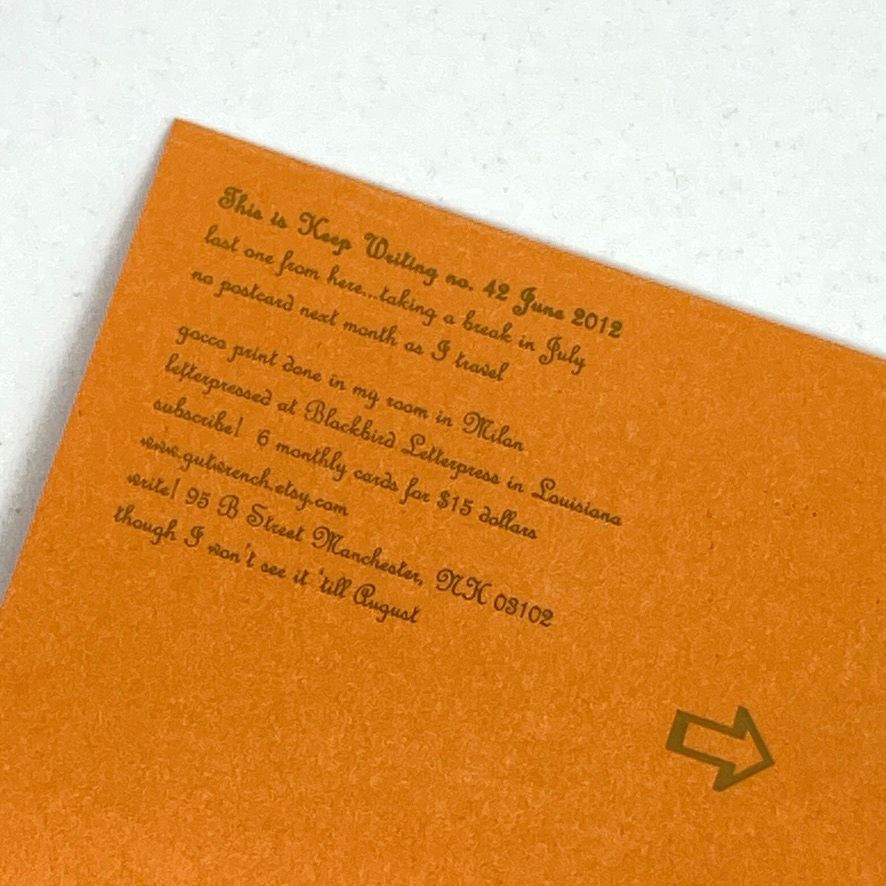 This is Keep Writing no. 42 June 2012
last one from here...taking a break in July
no postcard next month as I travel
gocco print done in my room in Milan
letterpressed at Blackbird Letterpress in Louisiana
subscribe! 6 monthly cards for $15 dollars
www.gutwrench.etsy.com
write! 95 B Street Manchester, NH 03102
though I won't see it 'till August